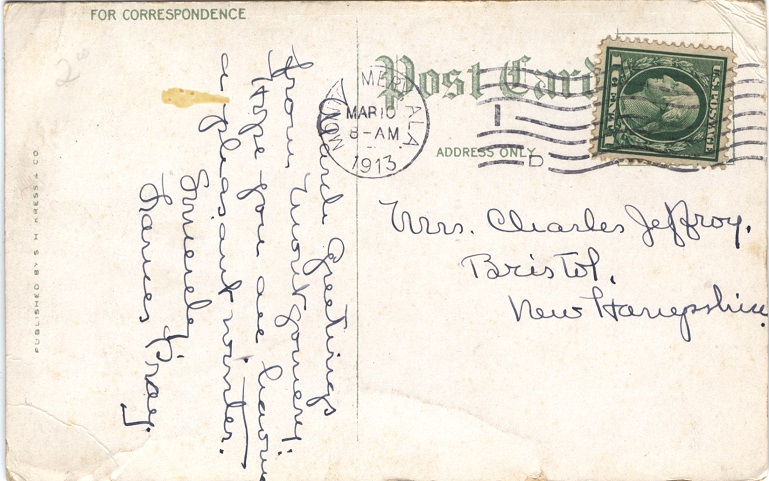 FOR CORRESPONDENCE
Post Card
ADDRESS ONLY
MONTGOMERY ALA.
MAR 10
8-AM
1913
1
D
U.S. POSTAGE
1 CENT 1
March Greetings
from Montgomery.
Hope you are having
a pleasant winter.
Sincerely,
Frances Pray.
Mrs. Charles Jeffroy.
Bristol,
New Hampshire.
PUBLISHED BY S. H. KRESS & CO.